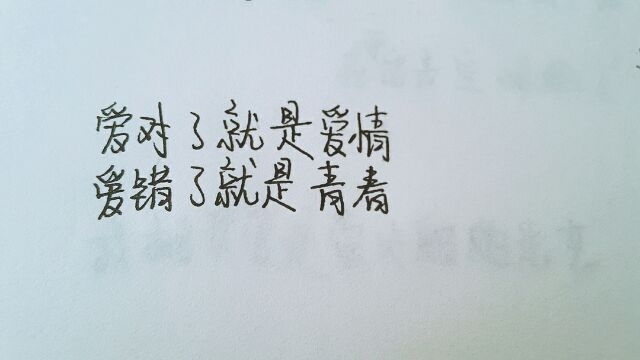 爱对了就是爱情
爱错了就是青春